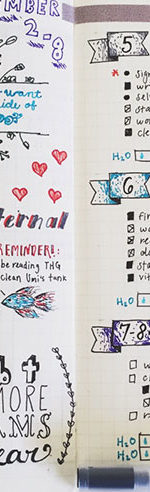 MBER
2-8
want
ide of
ternal
REMINDER!:
be reading THG
clean Umi's tank
bt
MORE
ear
5
sig
w
sel
sta
wo
cle
H₂O
6
fi
wa
re
sta
vit
H₂O
7-8
w
c
r
H₂O
H₂O